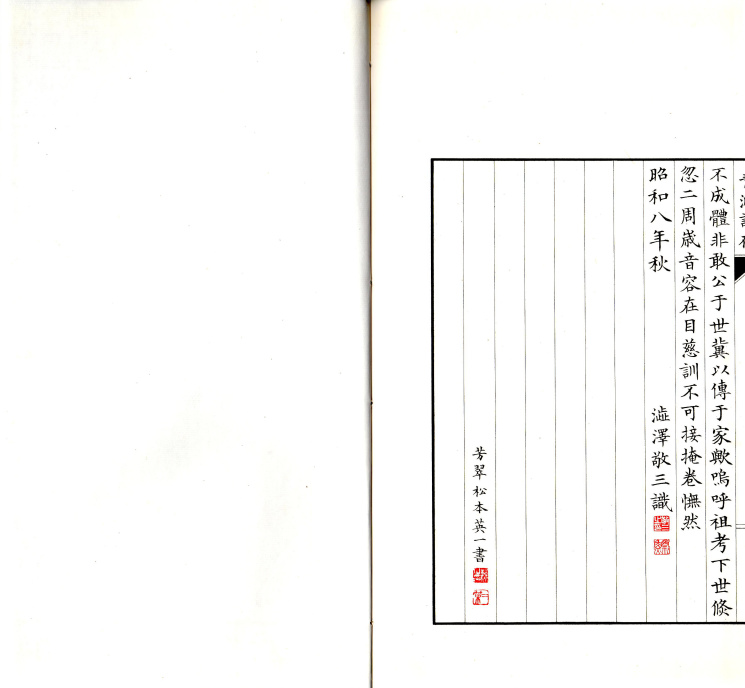 不成體非敢公于世冀以傳于家歟嗚呼祖考下世倐
忽二周歳音容在目慈訓不可接掩卷憮然
昭和八年秋
澁澤敬三識
芳翠松本英一書